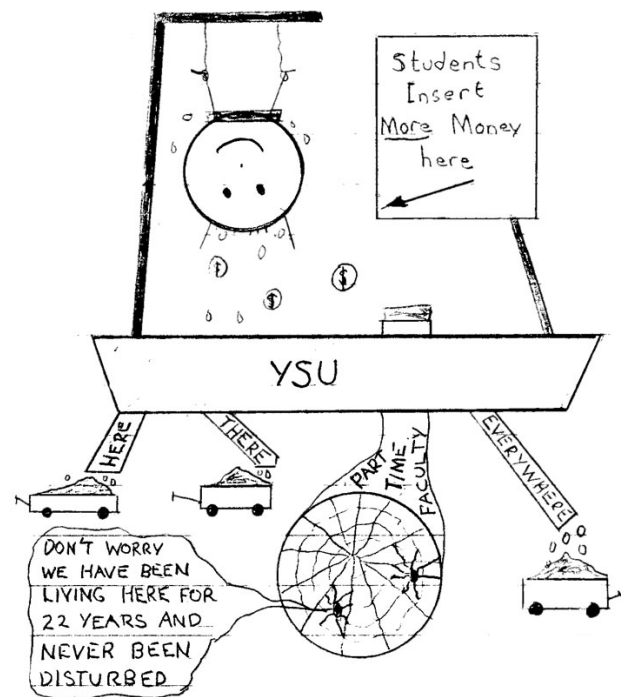 Students
Insert
More Money
here
$
$
$
YSU
HERE
THERE
PART
TIME
FACULTY
EVERYWHERE
DON'T WORRY
WE HAVE BEEN
LIVING HERE FOR
22 YEARS AND
NEVER BEEN
DISTURBED